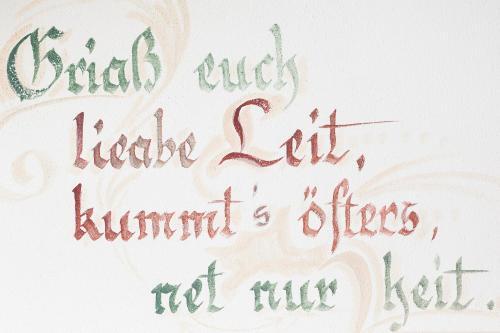 Griaß euch
lieabe Leit,
kummt's öfters,
net nur heit.